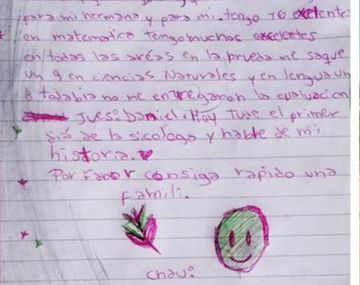 para mi hermana y para mi. tengo 16 exelentes
en matematica tengo muchos exelentes
en todas las areás en la prueva me saque
un 9 en ciencias Naturales y en lengua un
8 todabia no me entregaron la evaluacion
Jues: Daniel: Hoy tube el primer
diá de la sicologa y hable de mi
historia.
Por Favor consiga rapido una
Famili.
chau: